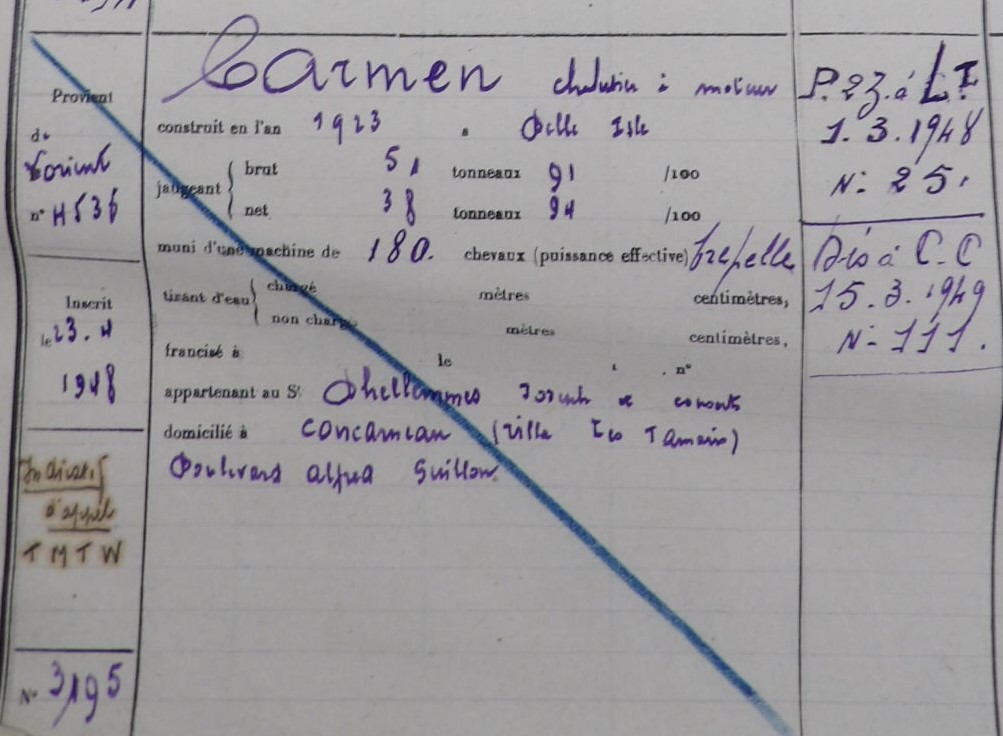 Provient
de
Lorient
n° H536
Inscrit
le 23. 4
1948
Indicatif
d'appel
TMTW
N° 3195
Carmen chalutier à moteur
construit en l'an 1923 à Belle Isle
jaugeant
brut 51 tonneaux 91 /100
net 38 tonneaux 94 /100
muni d'une machine de 180. chevaux (puissance effective)
tirant d'eau
chargé mètres centimètres,
non chargé mètres centimètres,
francisé à le n°
appartenant au Sr Dhellemmes &
domicilié à Concarneau (Ville
Boulevard Alfred Guillou
P.23. à LT
1.3.1948
N: 25.
Dis à C.C
15.3.1949
N: 111.